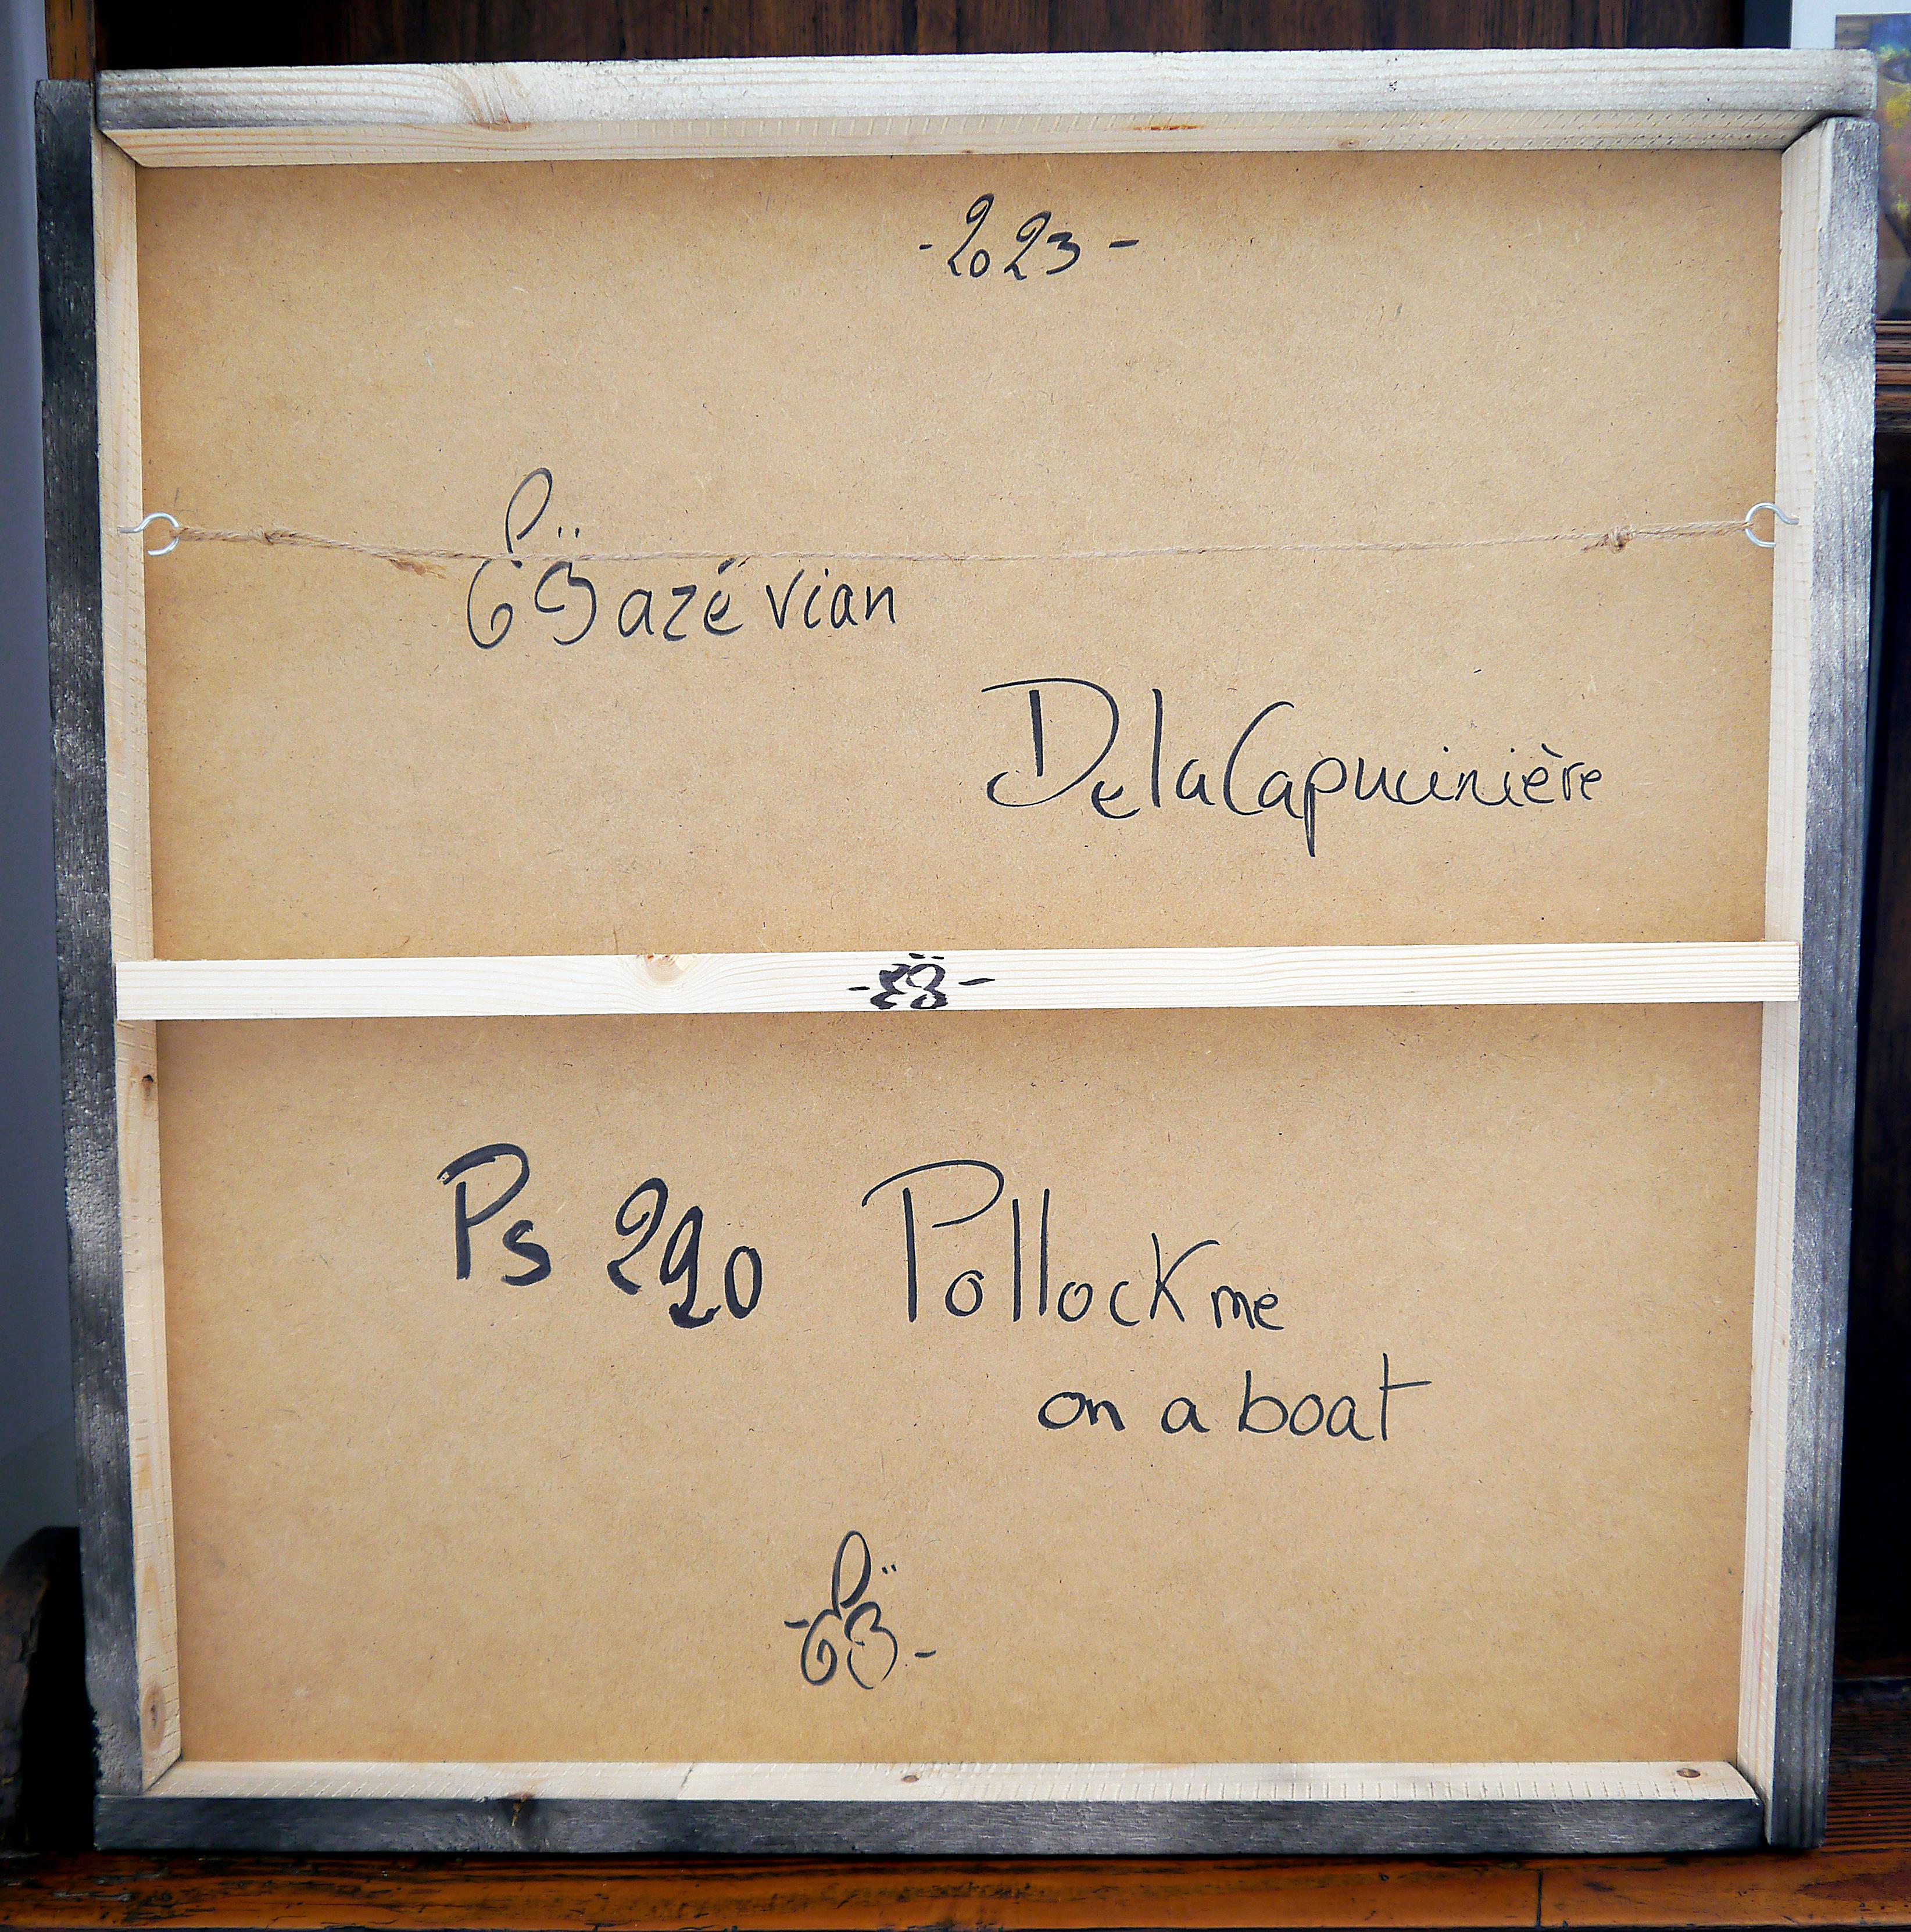 -2023-
Bazévian
DelaCapucinière
Ps 290 Pollock me
on a boat